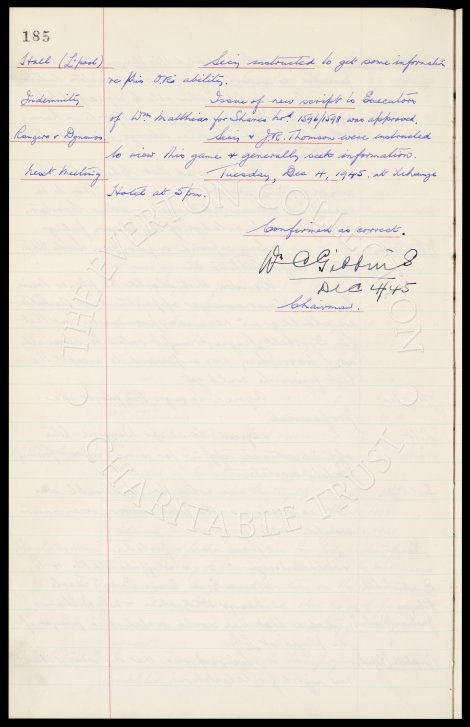 185
Hall (L'pool) Secy instructed to get some information
re this O.R's ability.
Indemnity Issue of new script to Executors
of Wm Matthias for Shares No's. 1596/1598 was approved.
Rangers v. Dynamos. Secy & J.C. Thomson were instructed
to view this game & generally seek information.
Next Meeting Tuesday, Dec 4, 1945. at Exchange
Hotel at 5 pm.
Confirmed as correct.
Wm C Gibbins
DEC 4/45
Chairman.
THE EVERTON COLLECTION
CHARITABLE TRUST